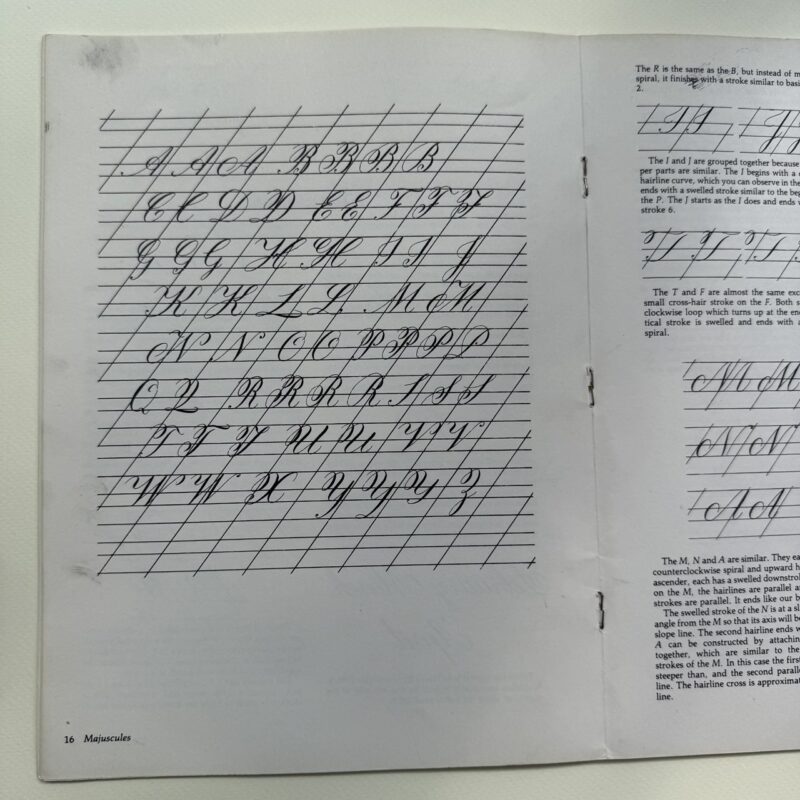 A A A B B B B
C C D D E E F F F
G G G H H I I J
K K L L M M
N N O O P P P P
Q Q R R R R S S S
T T T U U V V
W W X Y Y Y Z
16 Majuscules
The R is the same as the B, but instead of
spiral, it finishes with a stroke similar to
2.
I I J
The I and J are grouped together because
per parts are similar. The I begins with a
hairline curve, which you can observe in the
ends with a swelled stroke similar to the
the P. The J starts as the I does and ends
stroke 6.
The T and F are almost the same
small cross-hair stroke on the F. Both
clockwise loop which turns up at the
tical stroke is swelled and ends with
spiral.
M M
N N
A A
The M, N and A are similar. They
counterclockwise spiral and upward
ascender, each has a swelled
on the M, the hairlines are parallel
strokes are parallel. It ends like our
The swelled stroke of the N is at a
angle from the M so that its axis will
slope line. The second hairline ends
A can be constructed by
together, which are similar to the
strokes of the M. In this case the
steeper than, and the second
line. The hairline cross is
line.